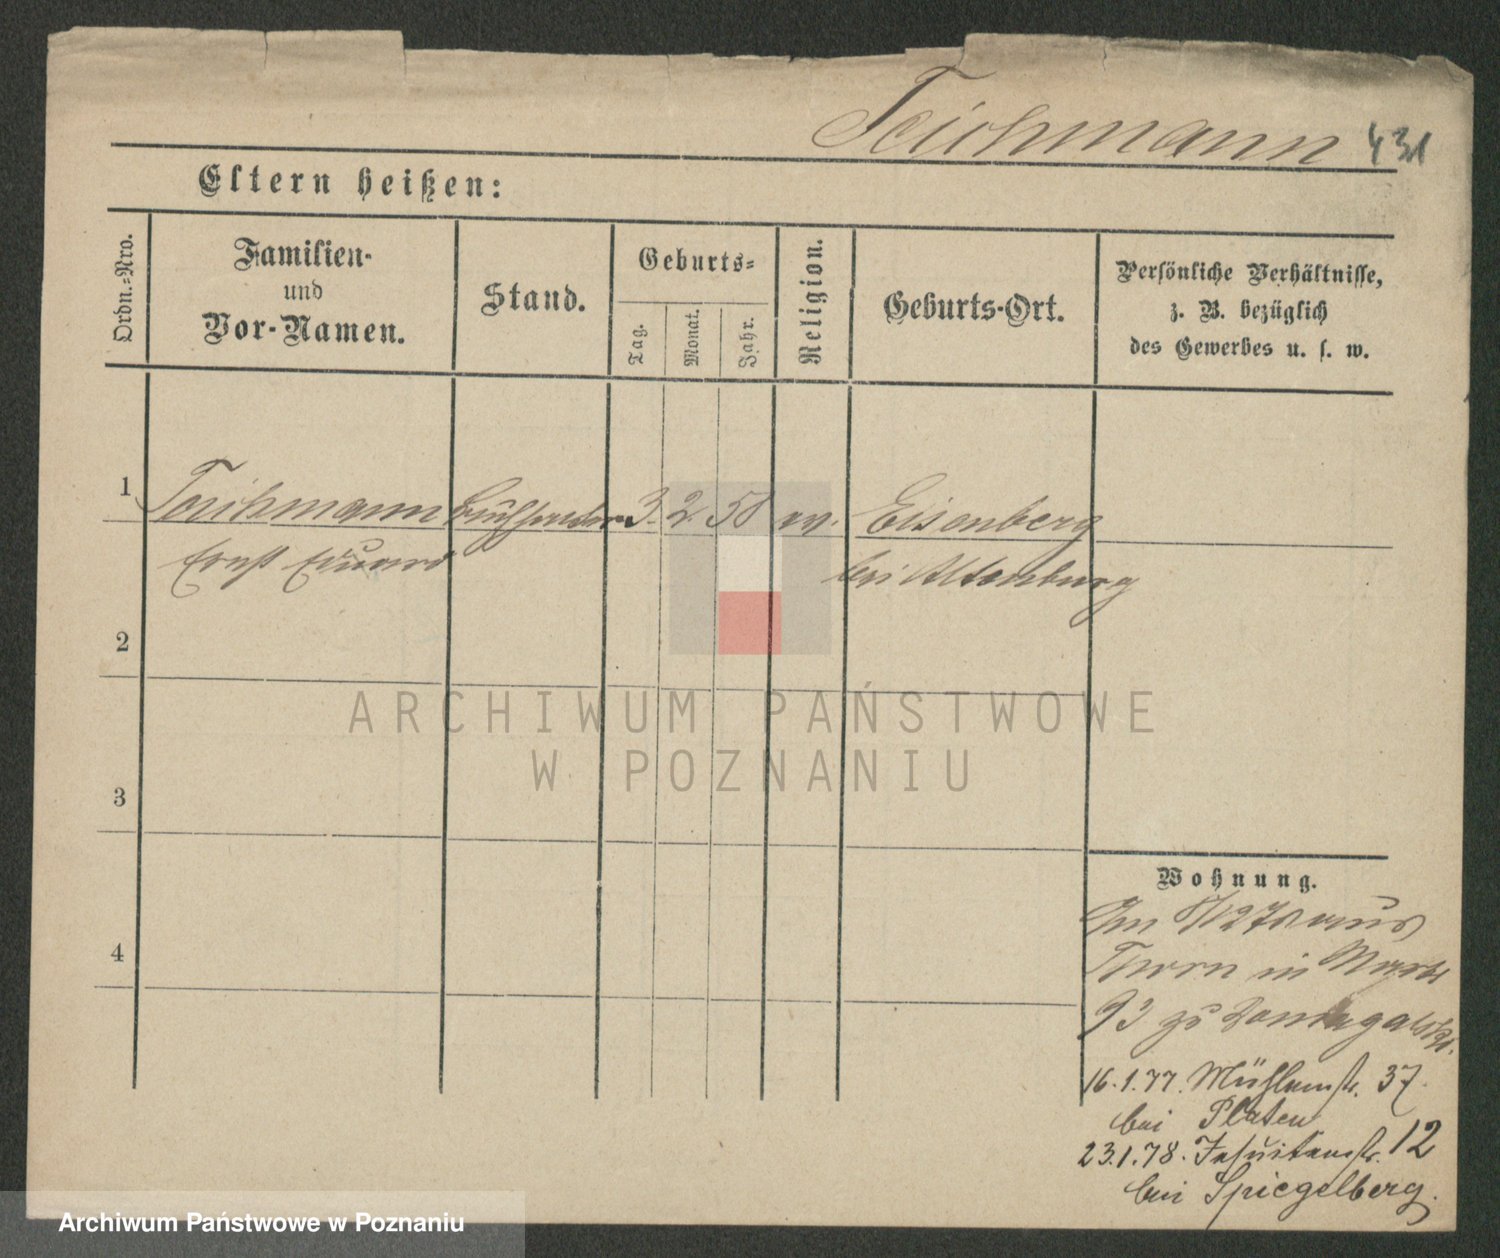 Teichmann 431
Eltern heißen:
Ordn.-Nro.
Familien-
und
Vor-Namen.
Stand.
Geburts-
Tag.
Monat.
Jahr.
Religion.
Geburts-Ort.
Persönliche Verhältnisse,
z. B. bezüglich
des Gewerbes u. s. w.
1 Teichmann 3. 2. 58 ev. Eisenberg
Ernst Eduard bei Altenburg
2
3
4
ARCHIWUM PAŃSTWOWE
W POZNANIU
Wohnung.
Thorn in
93 zu
16.1.77. Mühlenstr. 37.
bei Platen
23.1.78. Jesuitenstr. 12
bei Spiegelberg.
Archiwum Państwowe w Poznaniu